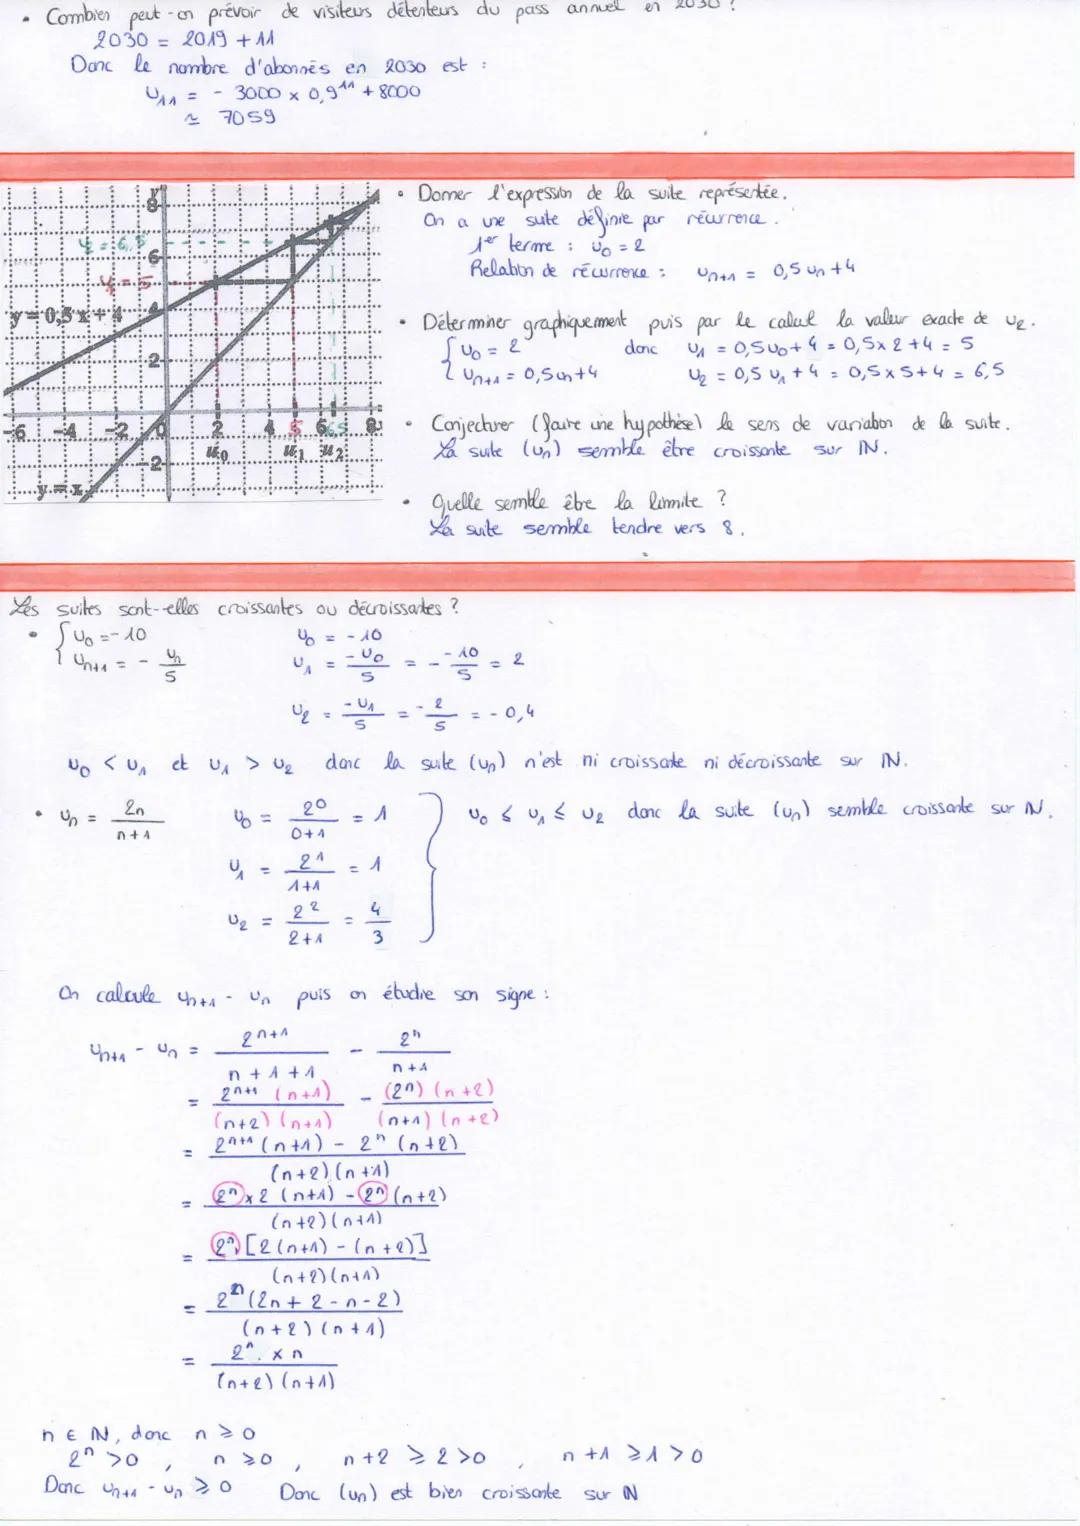 • Combien peut-on prévoir de visiteurs détenteurs du pass annuel en 2030 ?
2030 = 2019 + 11
Donc le nombre d'abonnés en 2030 est :
U₁₁ = - 3000 × 0,9¹¹ + 8000
≃ 7059
y
8
u₂ = 6,5
6
u₁ = 5
y = 0,5 x + 4
4
2
-6 -4 -2 0 2 4 5 6 6,5 8
u₀ u₁ u₂
-2
y = x
• Donner l'expression de la suite représentée.
On a une suite définie par récurrence.
1er terme : u₀ = 2
Relation de récurrence : un+1 = 0,5 un + 4
• Déterminer graphiquement puis par le calcul la valeur exacte de u₂.
{ u₀ = 2 donc u₁ = 0,5 u₀ + 4 = 0,5 × 2 + 4 = 5
{ un+1 = 0,5 un + 4 u₂ = 0,5 u₁ + 4 = 0,5 × 5 + 4 = 6,5
• Conjecturer (faire une hypothèse) le sens de variation de la suite.
La suite (un) semble être croissante sur ℕ.
• Quelle semble être la limite ?
La suite semble tendre vers 8.
Les suites sont-elles croissantes ou décroissantes ?
• { u₀ = - 10 u₀ = - 10
{ un+1 = - un/5 u₁ = -u₀/5 = - -10/5 = 2
u₂ = -u₁/5 = - 2/5 = - 0,4
u₀ < u₁ et u₁ > u₂ donc la suite (un) n'est ni croissante ni décroissante sur ℕ.
• un = 2n/n+1 u₀ = 2⁰/0+1 = 1 } u₀ ≤ u₁ ≤ u₂ donc la suite (un) semble croissante sur ℕ.
u₁ = 2¹/1+1 = 1
u₂ = 2²/2+1 = 4/3
On calcule un+1 - un puis on étudie son signe :
un+1 - un = 2ⁿ⁺¹/n+1+1 - 2ⁿ/n+1
= 2ⁿ⁺¹ (n+1)/(n+2)(n+1) - (2ⁿ)(n+2)/(n+1)(n+2)
= 2ⁿ⁺¹ (n+1) - 2ⁿ (n+2)/(n+2)(n+1)
= 2ⁿ × 2 (n+1) - 2ⁿ (n+2)/(n+2)(n+1)
= 2ⁿ [2(n+1) - (n+2)]/(n+2)(n+1)
= 2ⁿ (2n + 2 - n - 2)/(n+2)(n+1)
= 2ⁿ × n/(n+2)(n+1)
n ∈ ℕ, donc n ≥ 0
2ⁿ > 0 , n ≥ 0 , n+2 ≥ 2 > 0 , n+1 ≥ 1 > 0
Donc un+1 - un ≥ 0 Donc (un) est bien croissante sur ℕ